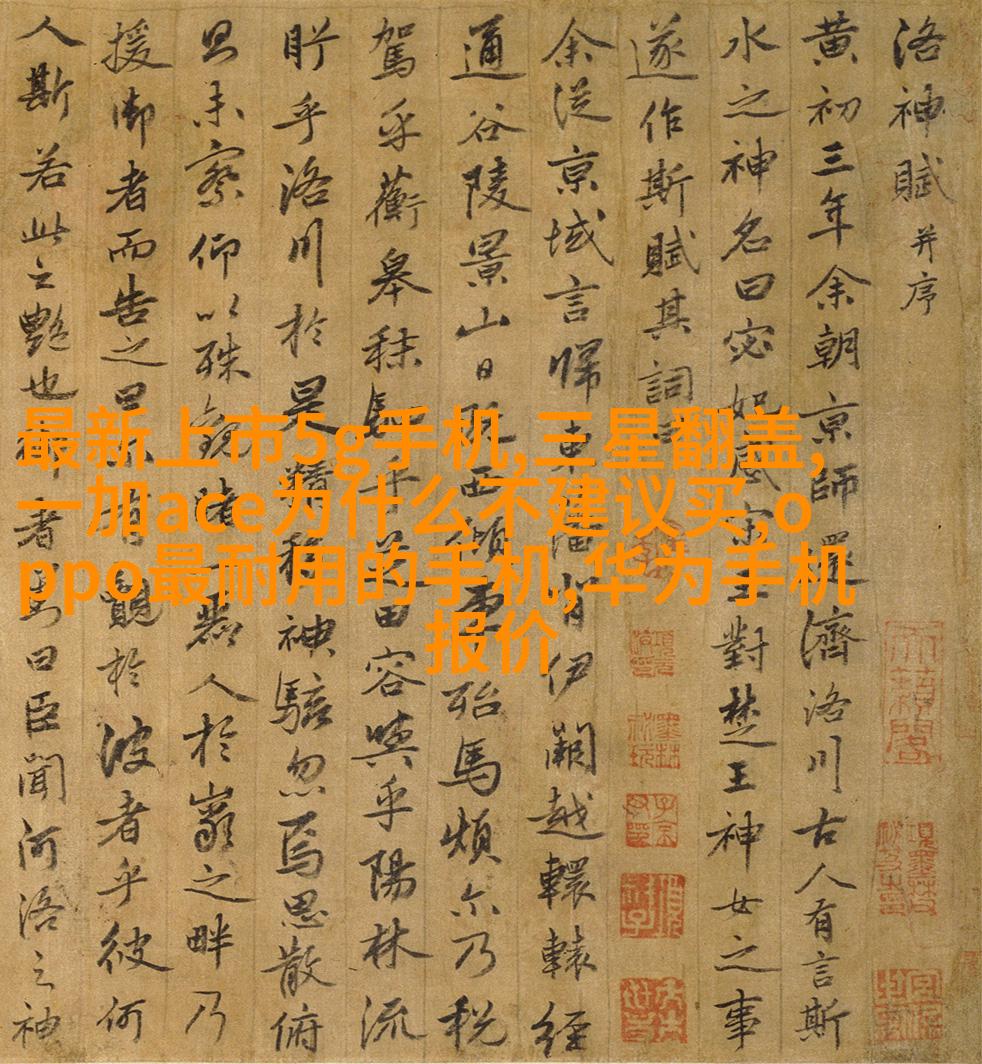 洛神賦 并序
黄初三年余朝京師還濟洛川古人有言斯
水之神名曰宓妃感宋玉對楚王神女之事
遂作斯賦其詞曰
余從京域言歸東藩背伊闕越轘轅經
通谷陵景山日既西傾車殆馬煩尒乃税
駕乎蘅皋秣駟乎芝田容與乎陽林流
眄乎洛川於是精移神駭忽焉思散俯
則未察仰以殊觀睹一麗人於巖之畔乃
援御者而告之曰尒有覿於彼者乎彼何
人斯若此之艷也御者對曰臣聞河洛之神
最新上市5g手机,三星翻盖,
一加ace为什么不建议买,o
ppo最耐用的手机,华为手机
报价